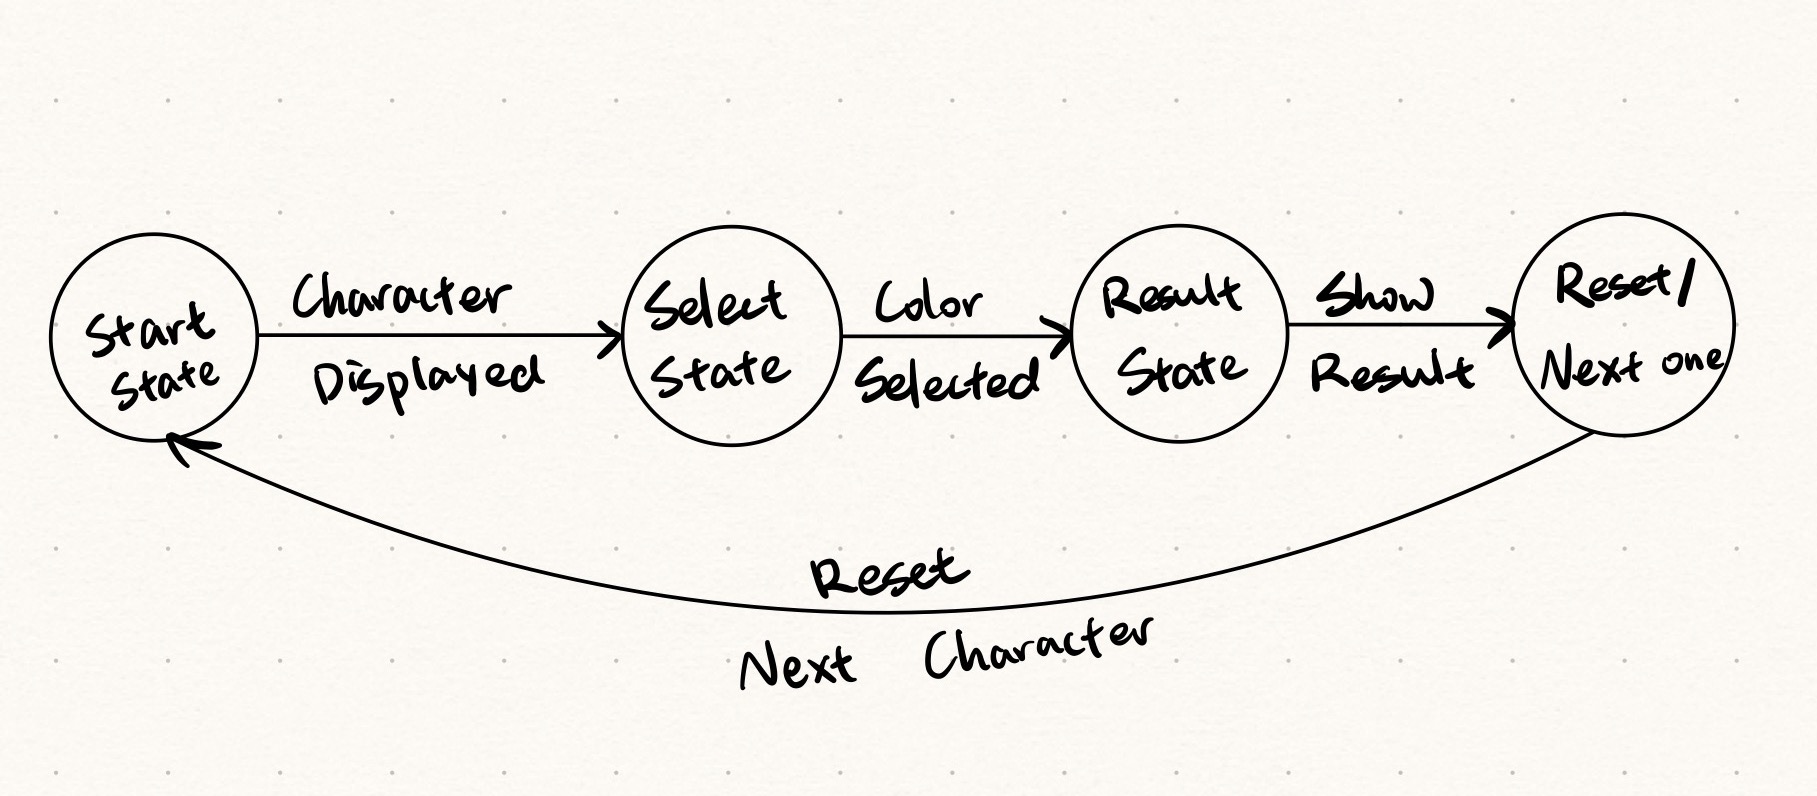 Start
State
Character
Displayed
Select
State
Color
Selected
Result
State
Show
Result
Reset/
Next one
Reset
Next Character